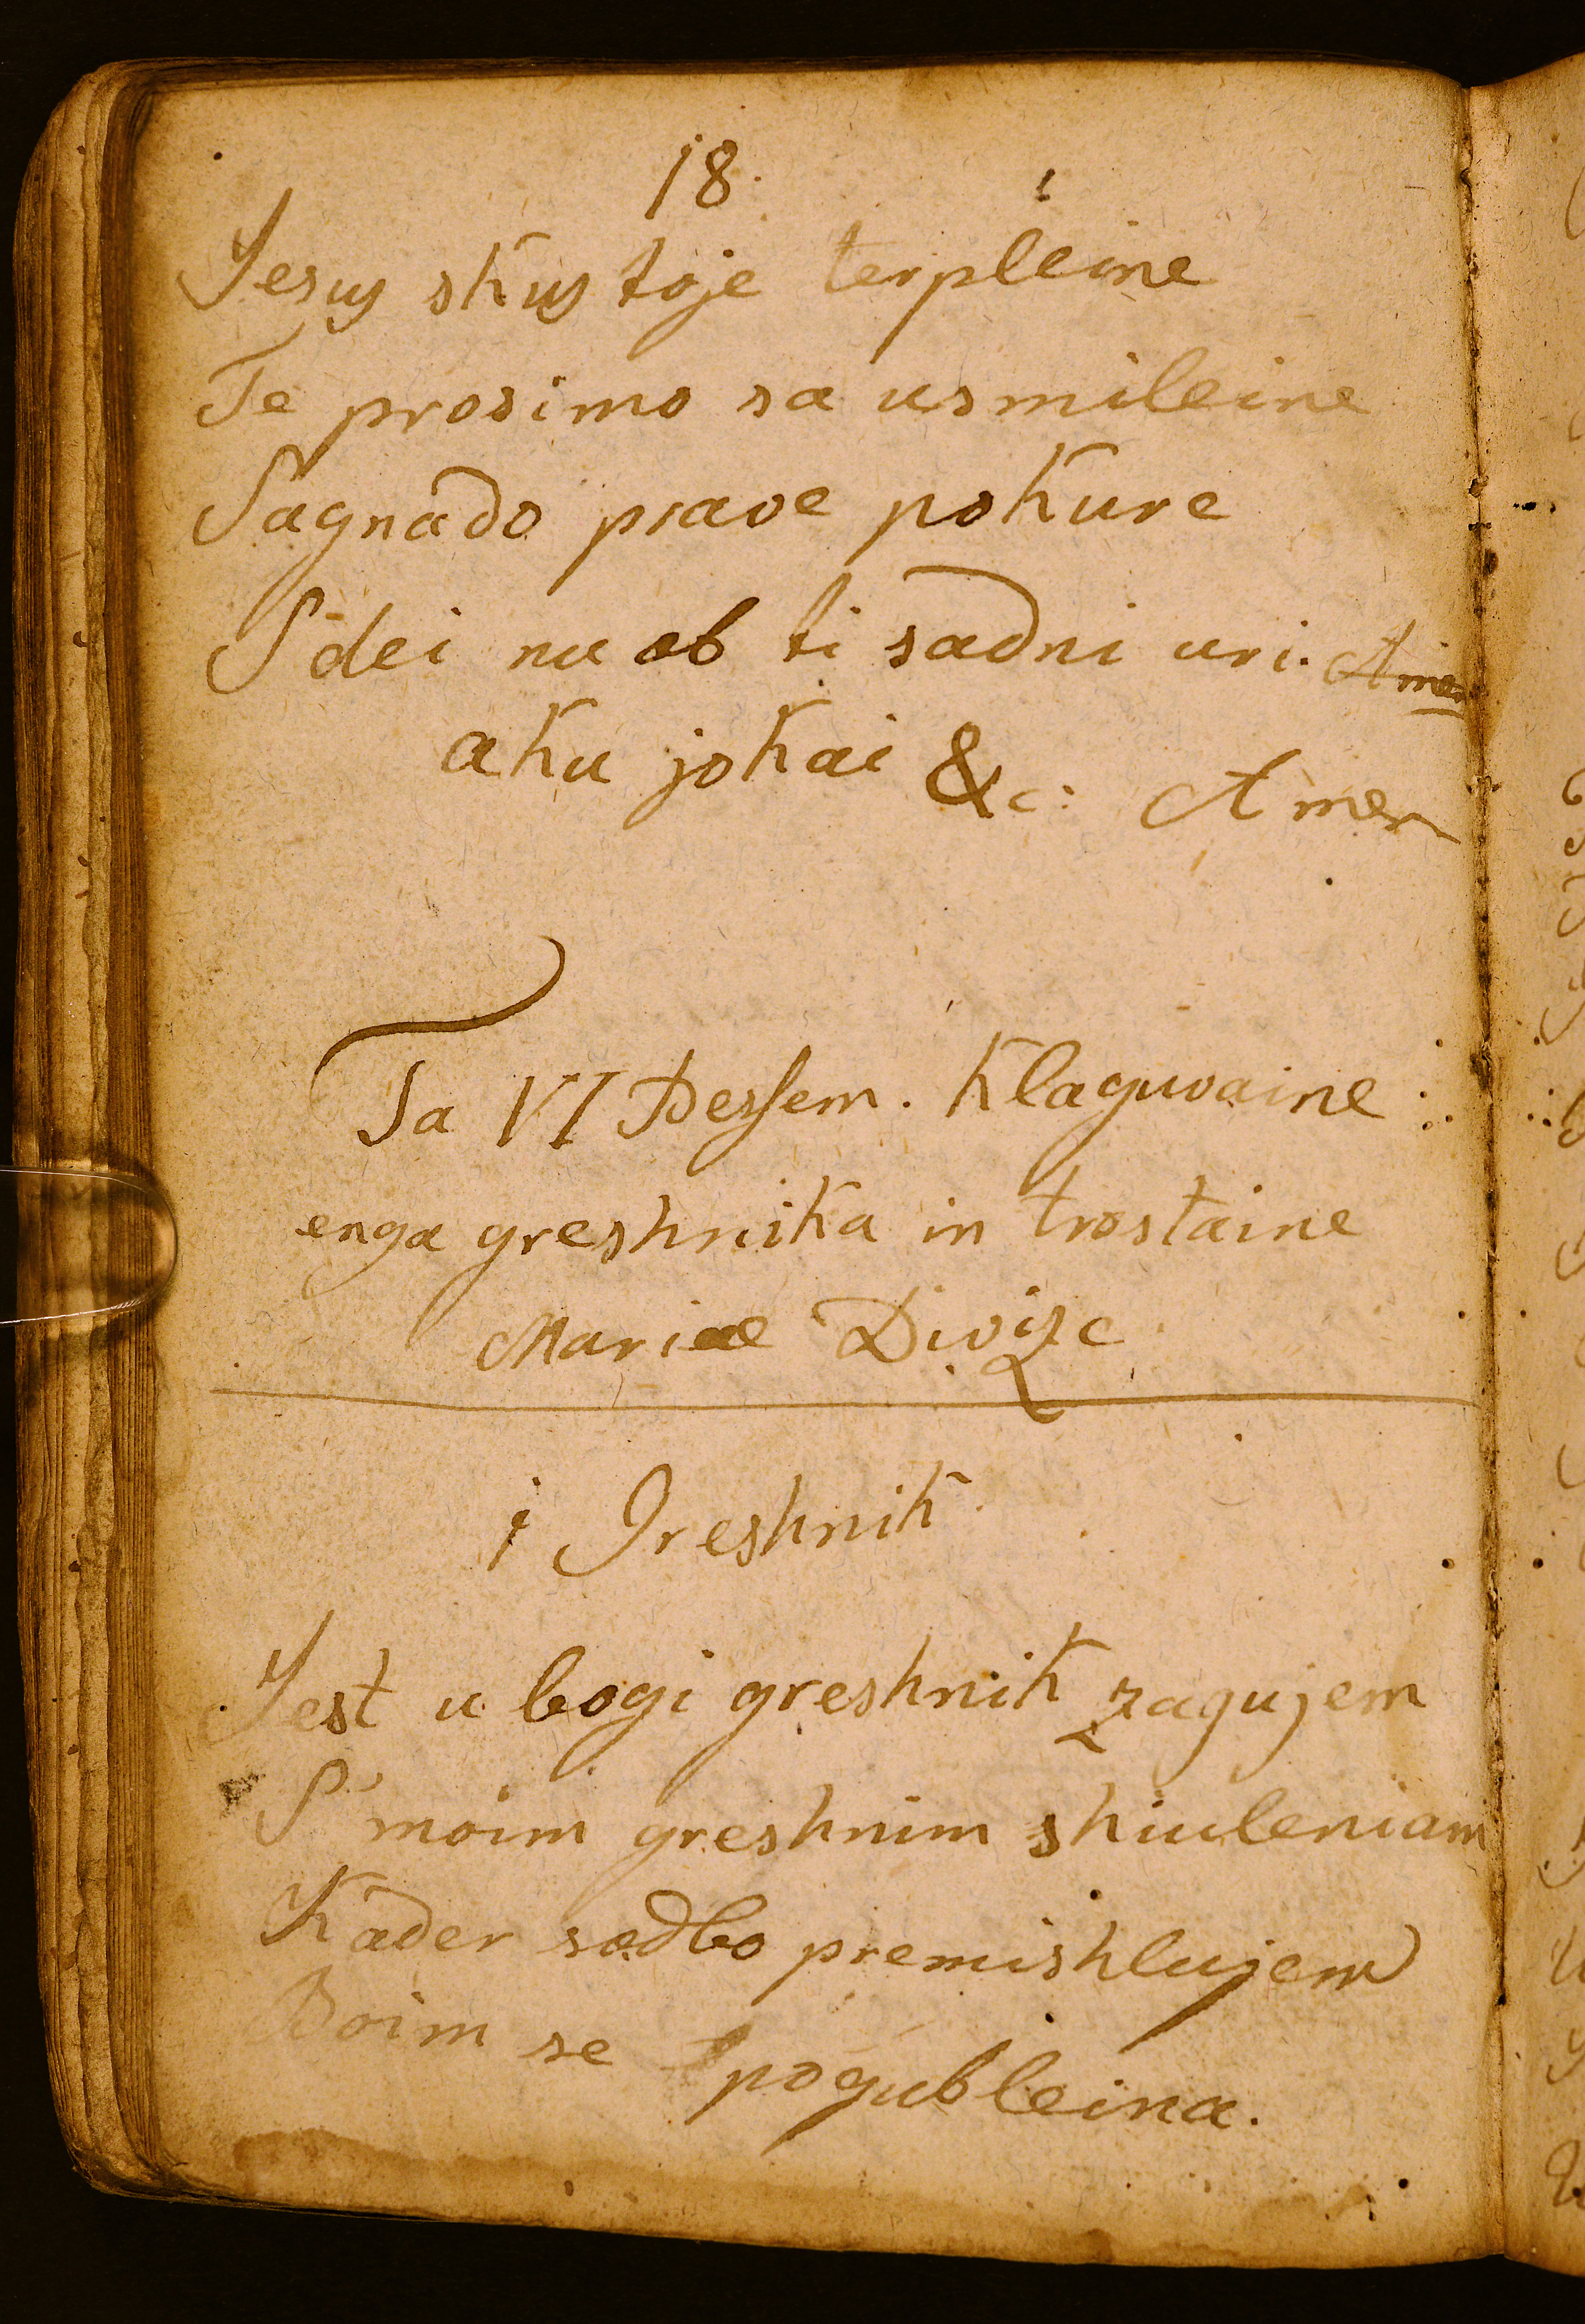 18.
Jesus skus toje terpleine
Te prosimo sa usmileine
Sagnado prave pokure
S dei nu ob ti sadni uri. Amen
aku jokai &c: Amen
Ta VI Pessem. Klaguvaine
enga greshnika in trostaine
Mariae Divize
1 Greshnik
Jest u bogi greshnik zagujem
S' moim greshnim shiuleniam
Kader sodbo premishlujem
Boim se pogubleina.